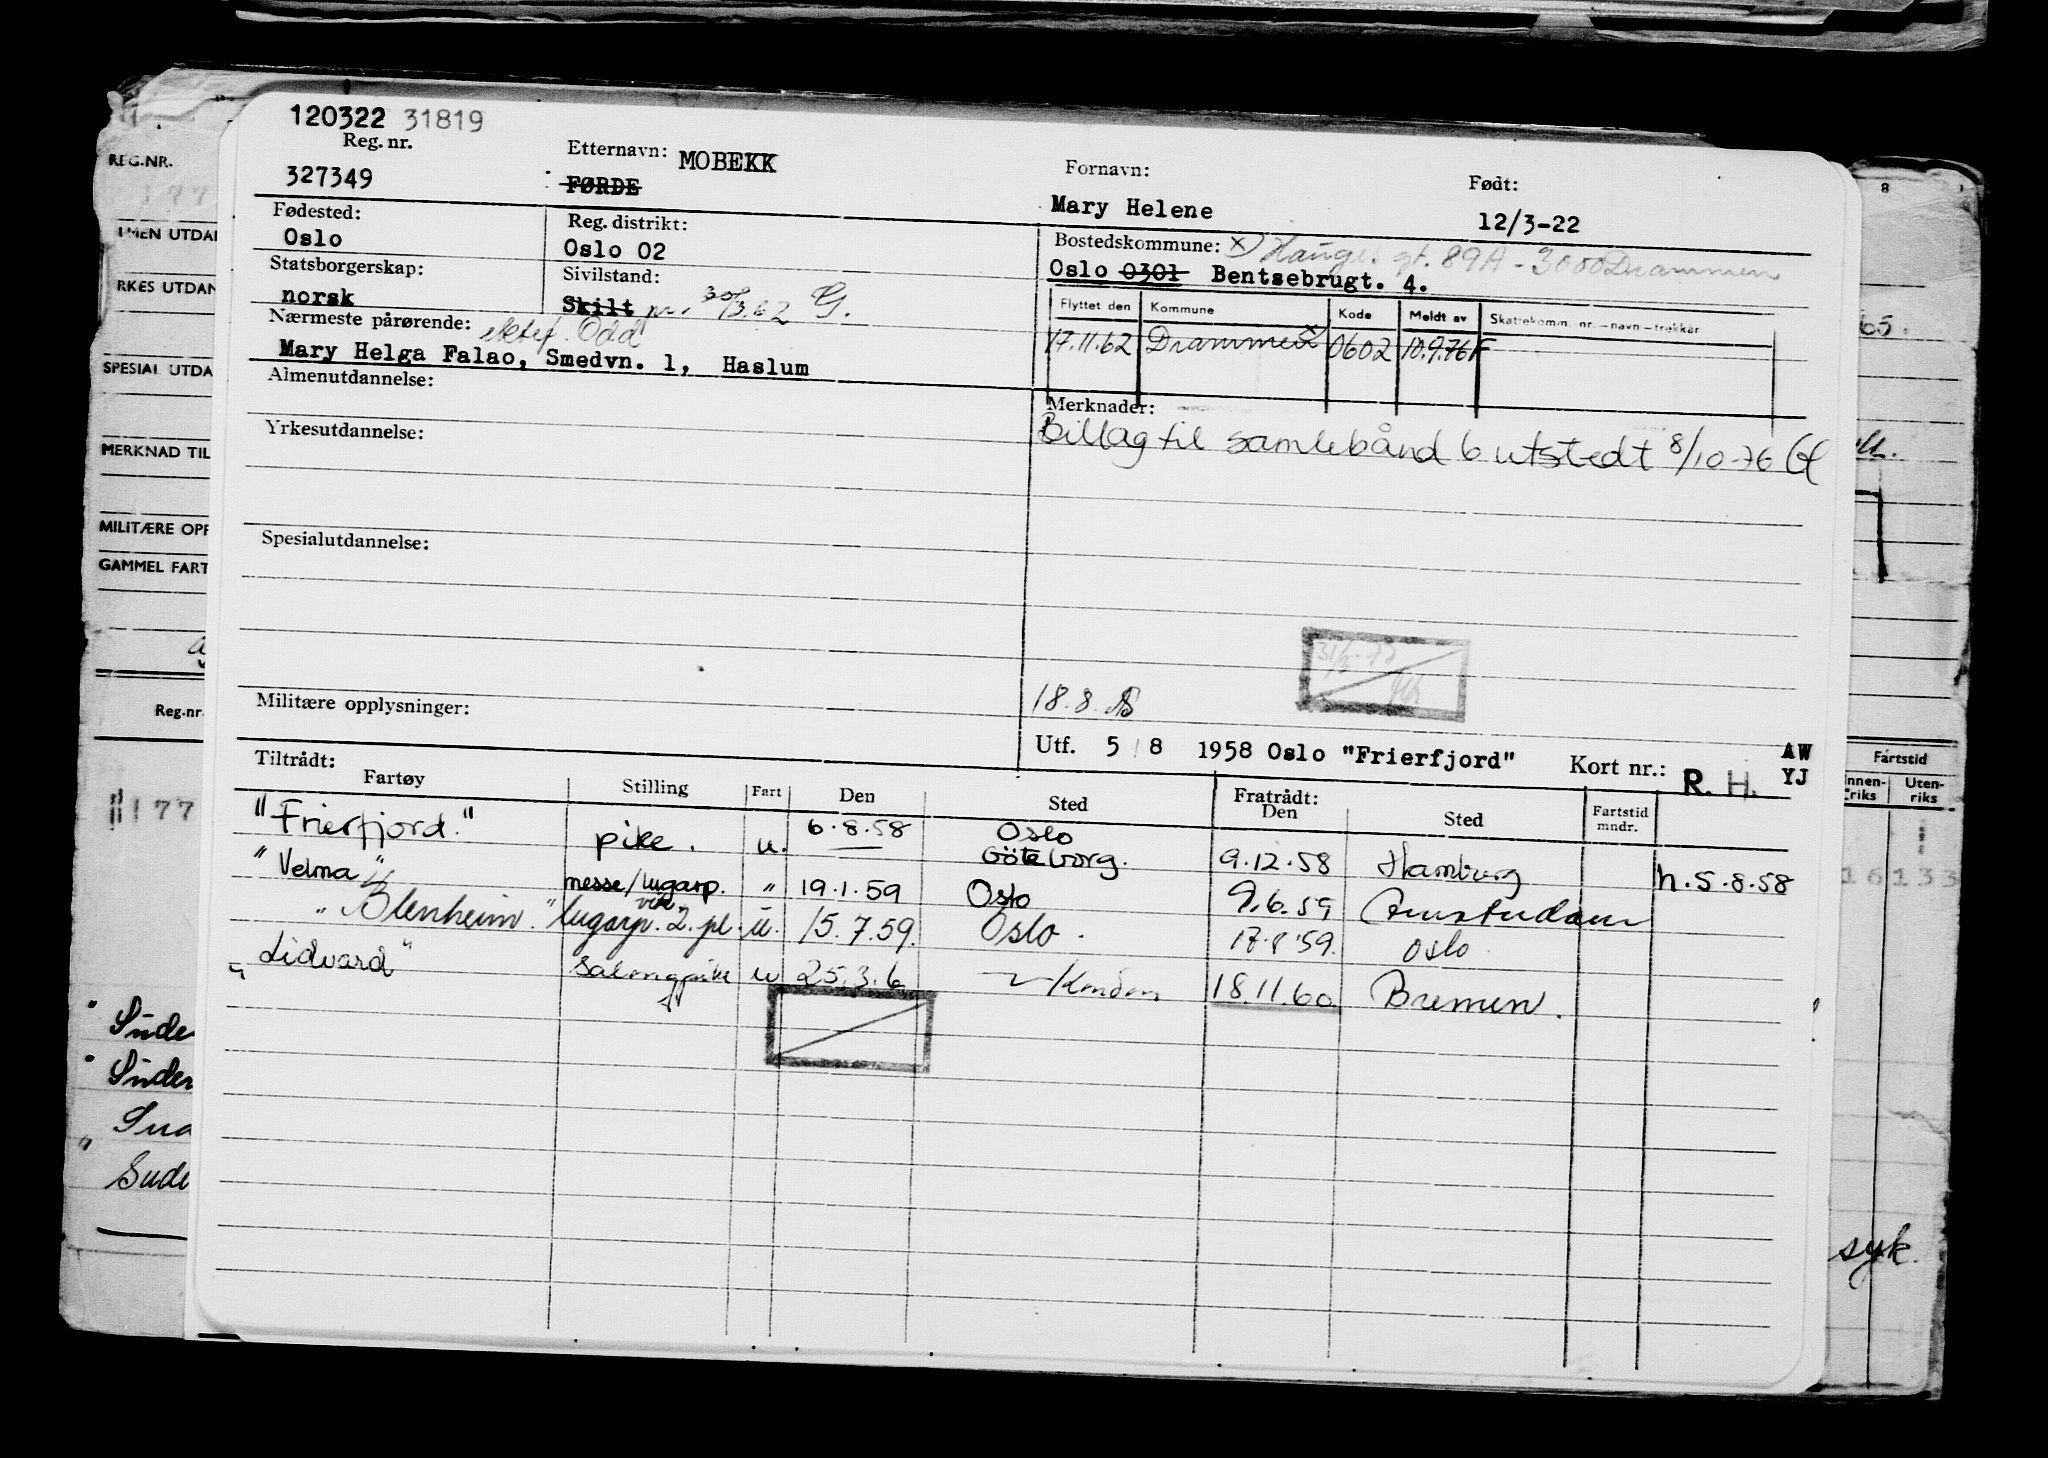 120322 31819
Reg. nr.
327349
Etternavn: MOBEKK
FØRDE
Fornavn:
Mary Helene
Født:
12/3-22
Fødested:
Oslo
Reg. distrikt:
Oslo 02
Bostedskommune: x) gt. 89A - 3000 Drammen
Oslo 0301 Bentsebrugt. 4.
Statsborgerskap:
norsk
Sivilstand:
Skilt 30/3.62 G.
Flyttet den Kommune Kode Meldt av Skattekomm. nr. – navn – trekkar
17.11.62 Drammen x 0602 10.9.76 F
Nærmeste pårørende: ektef. Odd
Mary Helga Falao, Smedvn. 1, Haslum
Almenutdannelse:
Merknader:
Billag til samlebånd 6 utstedt 8/10-76
Yrkesutdannelse:
Spesialutdannelse:
Militære opplysninger:
18.8.
Utf. 5/8 1958 Oslo "Frierfjord" Kort nr.: R. H. AW
YJ
Tiltrådt:
Fartøy Stilling Fart Den Sted Fratrådt: Den Sted Fartstid mndr.
"Frierfjord." pike. u. 6.8.58 Oslo
Göteborg. 9.12.58 Hamburg h.5.8.58
"Velma" messe/lugarp. " 19.1.59 Oslo 9.6.59 Amsterdam
"Blenheim." lugarp. 2. pl. u. 15.7.59. Oslo. 17.8.59. Oslo
"Lidvard" salongpike u 25.3.6 London 18.11.60 Bremen.
REG.NR.
177
MEN UTDAN
RKES UTDAN
SPESIAL UTDA
MERKNAD TIL
MILITÆRE OPP
GAMMEL FART
Reg.nr.
177
Süde
Süder
Sude
8
65.
Fartstid
Innen-
riks
Uten-
riks
16 133
syk.